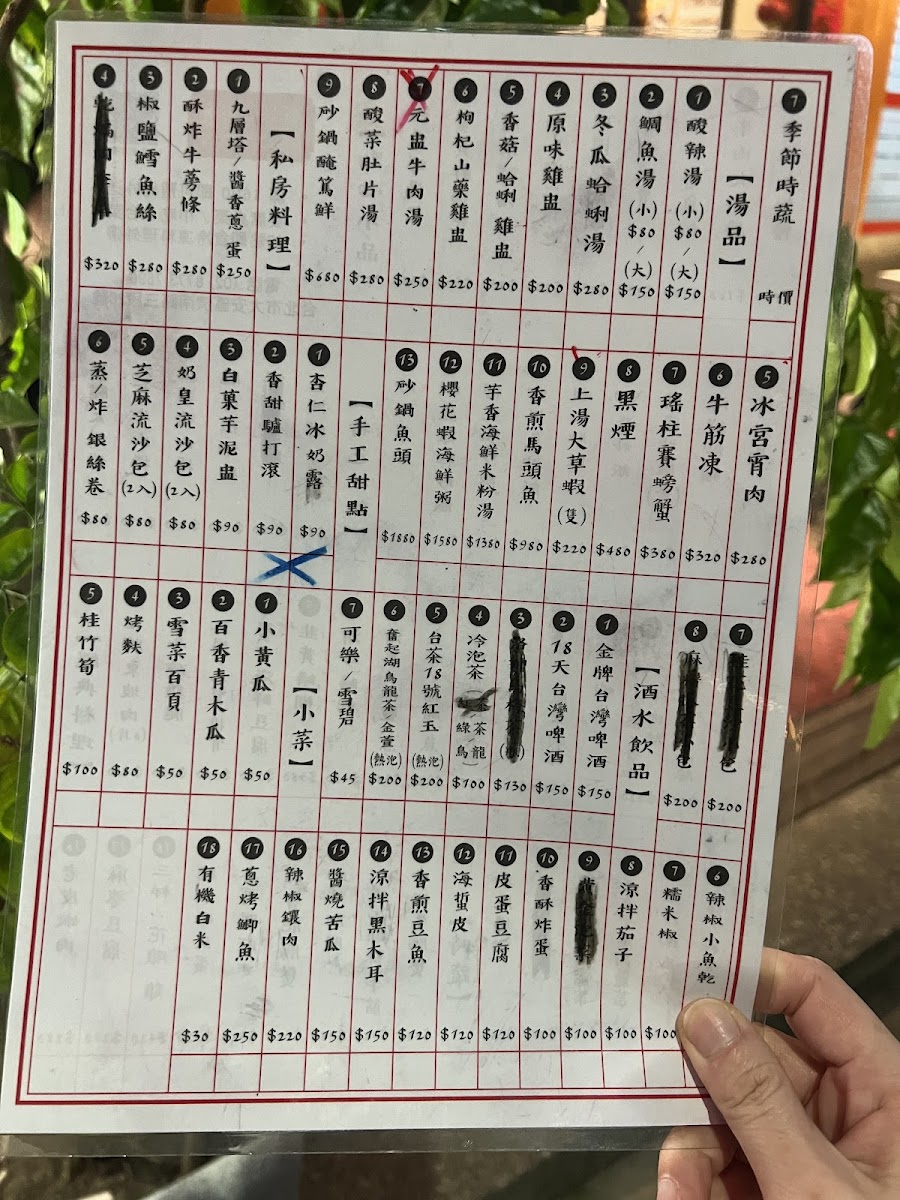 7 季節時蔬 時價
【湯品】
1 酸辣湯 (小)$80/(大)$150
2 鯛魚湯 (小)$80/(大)$150
3 冬瓜蛤蜊湯 $280
4 原味雞盅 $200
5 香菇/蛤蜊 雞盅 $200
6 枸杞山藥雞盅 $220
7 元盅牛肉湯 $250
8 酸菜肚片湯 $280
9 砂鍋醃篤鮮 $680
【私房料理】
1 九層塔/醬香蔥 蛋 $250
2 酥炸牛蒡條 $280
3 椒鹽鱈魚絲 $280
4 $320
5 冰宮宵肉 $280
6 牛筋凍 $320
7 瑤柱賽螃蟹 $380
8 黑煙 $480
9 上湯大草蝦(隻) $220
10 香煎馬頭魚 $980
11 芋香海鮮米粉湯 $1380
12 櫻花蝦海鮮粥 $1580
13 砂鍋魚頭 $1880
【手工甜點】
1 杏仁冰奶露 $90
2 香甜驢打滾 $90
3 白菓芋泥盅 $90
4 奶皇流沙包(2入) $80
5 芝麻流沙包(2入) $80
6 蒸/炸 銀絲卷 $80
7 包 $200
8 麻 包 $200
【酒水飲品】
1 金牌台灣啤酒 $150
2 18天台灣啤酒 $150
3 $130
4 冷泡茶 綠茶/烏龍 $100
5 台茶18號紅玉(熱泡) $200
6 奮起湖烏龍茶/金萱(熱泡) $200
7 可樂/雪碧 $45
【小菜】
1 小黃瓜 $50
2 百香青木瓜 $50
3 雪菜百頁 $50
4 烤麩 $80
5 桂竹筍 $100
6 辣椒小魚乾
7 糯米椒 $100
8 涼拌茄子 $100
9 $100
10 香酥炸蛋 $100
11 皮蛋豆腐 $120
12 海蜇皮 $120
13 香煎豆魚 $120
14 涼拌黑木耳 $150
15 醬燒苦瓜 $150
16 辣椒鑲肉 $220
17 蔥烤鯽魚 $250
18 有機白米 $30